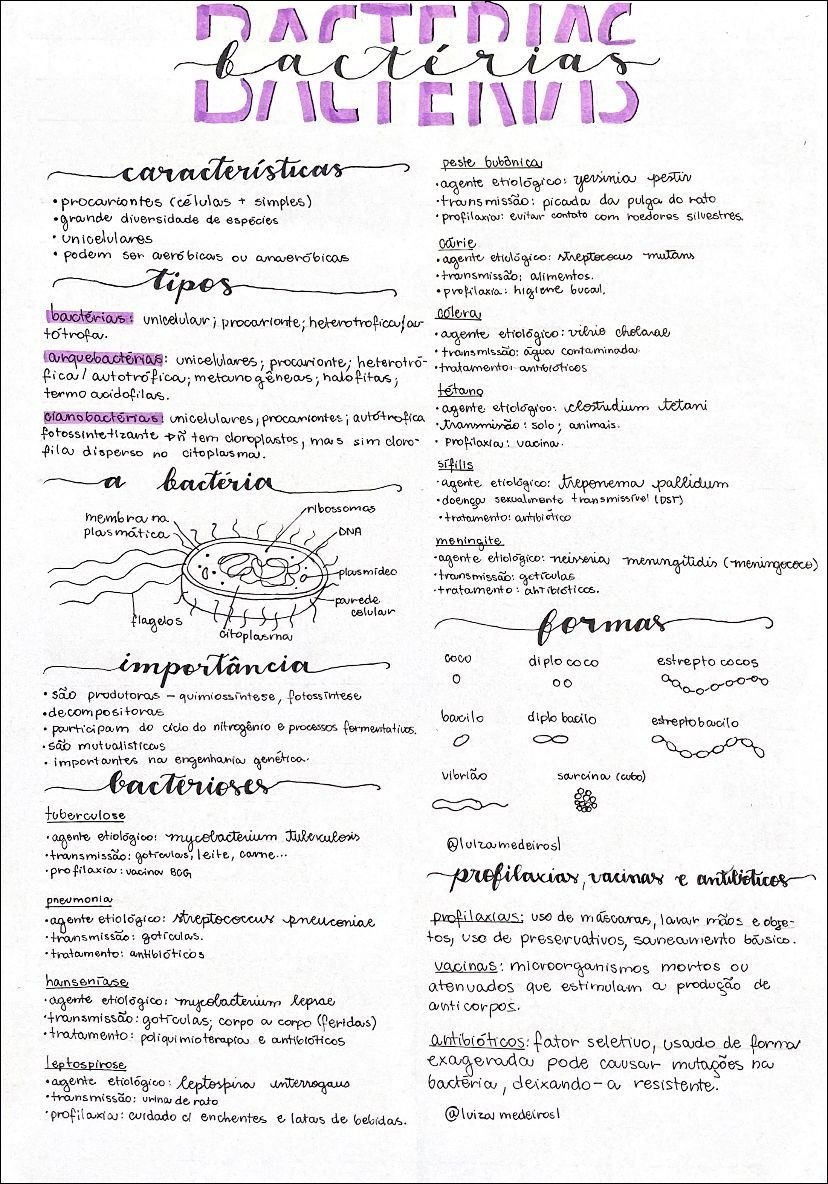 BACTERIAS
bactérias
BACTERIAS
características
• procariontes (células + simples)
• grande diversidade de espécies
• unicelulares
• podem ser aeróbicas ou anaeróbicas
tipos
bactérias: unicelular; procarionte; heterotrofica/au
tótrofa.
arquebactérias: unicelulares; procarionte; heterotró-
fica/ autotrófica; metanogêneas; halofitas;
termoacidofilas.
cianobactérias: unicelulares; procariontes; autótrofica
fotossintetizante → ñ tem cloroplastos, mais sim cloro-
fila disperso no citoplasma.
a bactéria
membrana
plasmática
ribossomos
DNA
plasmídeo
parede
celular
flagelos
citoplasma
importância
• são produtoras – quimiossíntese, fotossíntese
• decompositoras
• participam do ciclo do nitrogênio e processos fermentativos.
• são mutualísticas
• importantes na engenharia genética.
bacterioses
tuberculose
• agente etiológico: mycobacterium tuberculosis
• transmissão: gotículas, leite, carne...
• profilaxia: vacina BCG
pneumonia
• agente etiológico: streptococcus pneuconiae
• transmissão: gotículas.
• tratamento: antibióticos
hanseníase
• agente etiológico: mycobacterium leprae
• transmissão: gotículas; corpo a corpo (feridas)
• tratamento: poliquimioterapia e antibióticos
leptospirose
• agente etiológico: leptospira interrogans
• transmissão: urina de rato
• profilaxia: cuidado c/ enchentes e latas de bebidas.
peste bubônica
• agente etiológico: yersinia pestis
• transmissão: picada da pulga do rato
• profilaxia: evitar contato com roedores silvestres.
cárie
• agente etiológico: streptococus mutans
• transmissão: alimentos.
• profilaxia: higiene bucal.
cólera
• agente etiológico: vibrio cholerae
• transmissão: água contaminada
• tratamento: antibióticos
tétano
• agente etiológico: clostudium tetani
• transmissão: solo; animais.
• profilaxia: vacina.
sífilis
• agente etiológico: treponema pallidum
• doença sexualmente transmissível (DST)
• tratamento: antibiótico
meningite
• agente etiológico: neisseria meningitidis (meningococo)
• transmissão: gotículas
• tratamento: antibióticos.
formas
coco diplococo estreptococos
bacilo diplobacilo estreptobacilo
vibrião sarcina (cubo)
@luizamedeiros1
profilaxias, vacinas e antibióticos
profilaxias: uso de máscaras, lavar mãos e obje-
tos, uso de preservativos, saneamento básico.
vacinas: microorganismos mortos ou
atenuados que estimulam a produção de
anticorpos.
antibióticos: fator seletivo, usado de forma
exagerada pode causar mutações na
bactéria, deixando-a resistente.
@luizamedeiros1